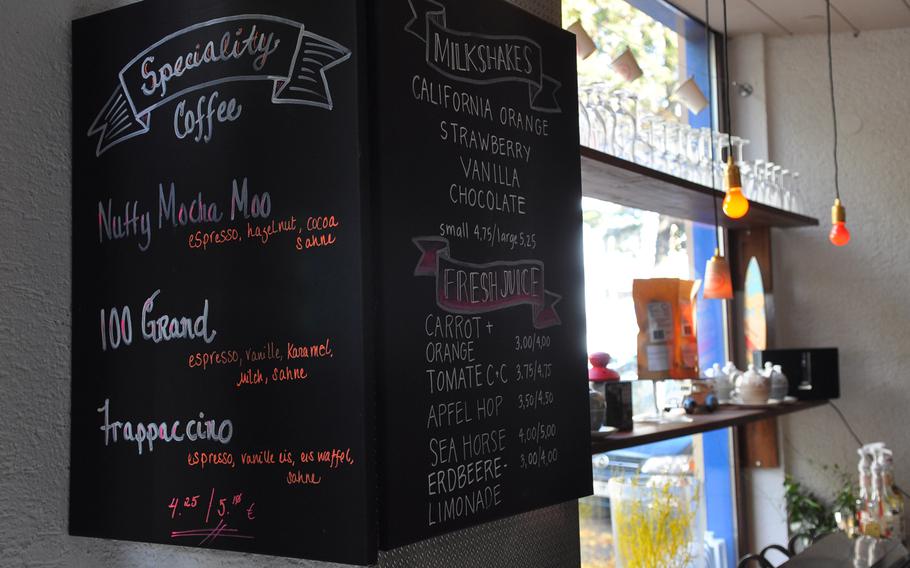 Speciality
Coffee
Nutty Mocha Moo
espresso, hazelnut, cocoa
sahne
100 Grand
espresso, vanille, Karamel,
Milch, sahne
Frappaccino
espresso, vanille eis, eis waffel,
sahne
4.25 / 5.
€
MILKSHAKES
CALIFORNIA ORANGE
STRAWBERRY
VANILLA
CHOCOLATE
small 4.75/large 5.25
FRESH JUICE
CARROT +
ORANGE 3,00/4,00
TOMATE C+C 3,75/4,75
APFEL HOP 3,50/4,50
SEA HORSE 4,00/5,00
ERDBEERE- 3,00/4,00
LIMONADE